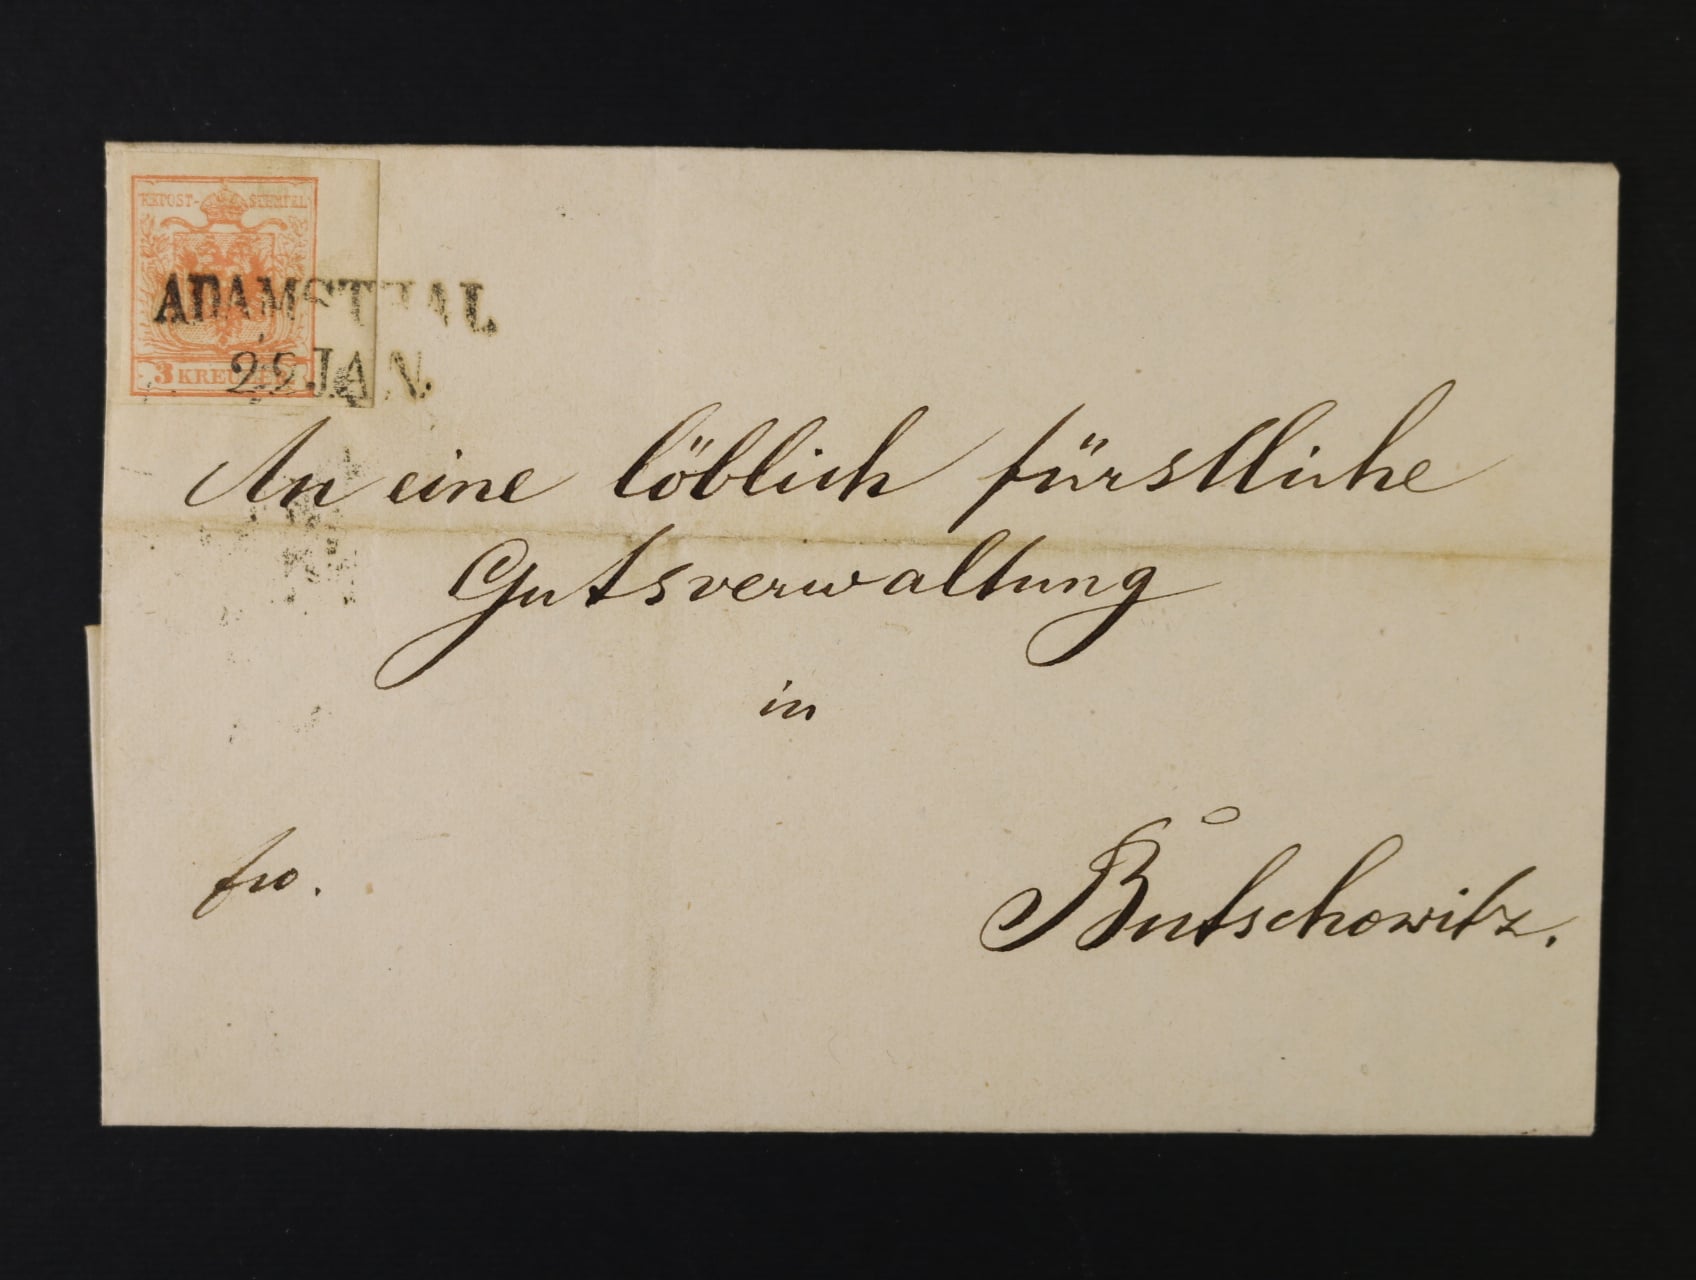 KKPOST-STEMPEL
3 KREUZER
ADAMSTHAL
22 JAN.
An eine löblich fürstliche
Gutsverwaltung
in
fro.
Butschowitz.